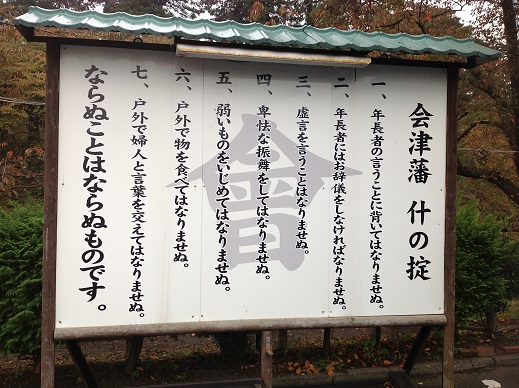 会津藩 什の掟
一、年長者の言うことに背いてはなりませぬ。
二、年長者にはお辞儀をしなければなりませぬ。
三、虚言を言うことはなりませぬ。
四、卑怯な振舞をしてはなりませぬ。
五、弱いものをいじめてはなりませぬ。
六、戸外で物を食べてはなりませぬ。
七、戸外で婦人と言葉を交えてはなりませぬ。
ならぬことはならぬものです。
會